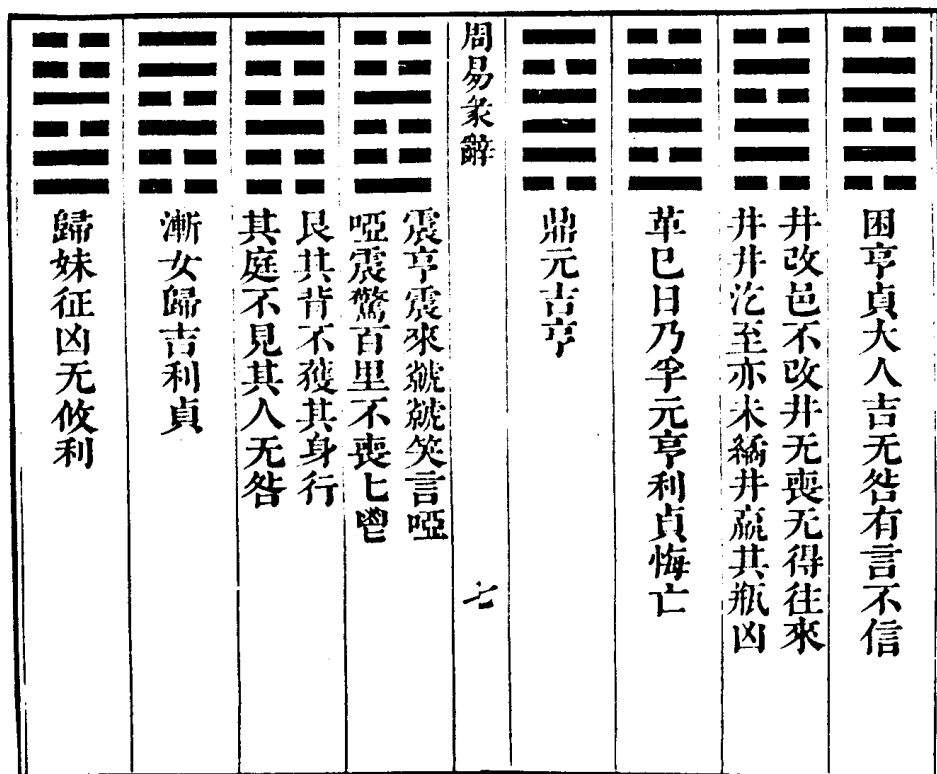 困亨貞大人吉无咎有言不信
井改邑不改井无喪无得往來
井井汔至亦未繘井羸其瓶凶
革巳日乃孚元亨利貞悔亡
鼎元吉亨
周易彖辭
七
震亨震來虩虩笑言啞
啞震驚百里不喪匕鬯
艮其背不獲其身行
其庭不見其人无咎
漸女歸吉利貞
歸妹征凶无攸利